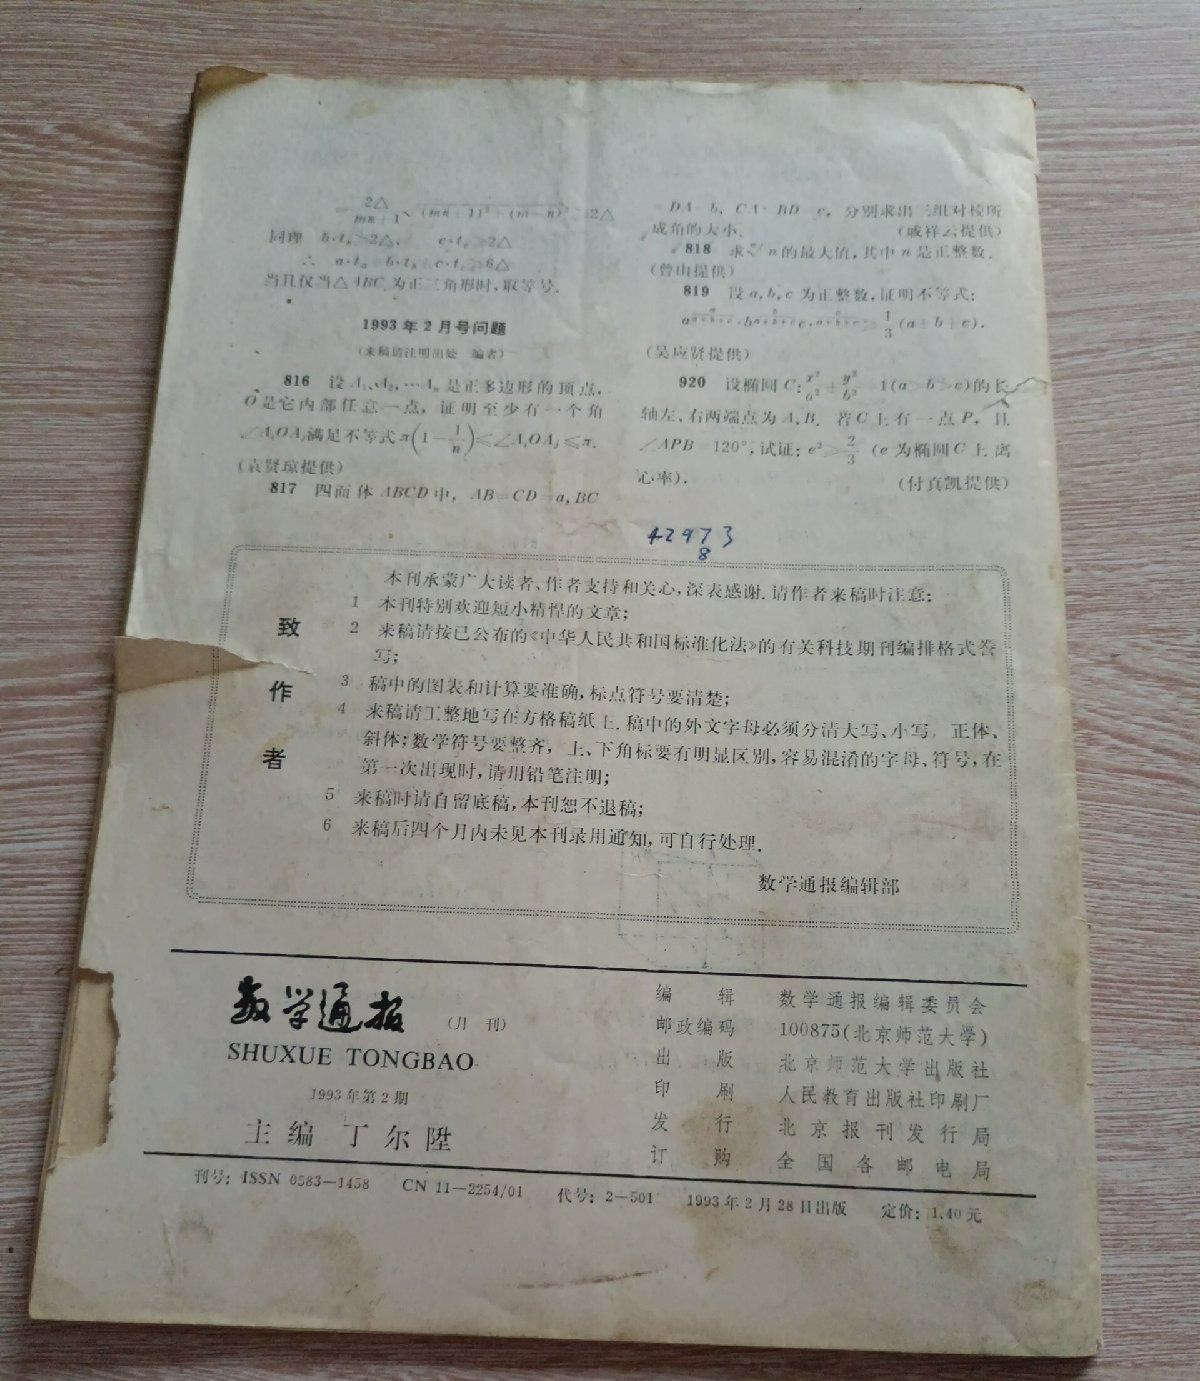 2△
mn+1 √(mn+1)²+(m-n)² ≥2△
同理 b·t_b≥2△, c·t_c≥2△
∴ a·t_a+b·t_b+c·t_c≥6△
当且仅当△ABC为正三角形时,取等号.
1993年2月号问题
(来稿请注明出处 编者)
816 设A₁、A₂,…Aₙ是正多边形的顶点,
O是它内部任意一点, 证明至少有一个角
∠AᵢOAⱼ满足不等式π(1-1/n)≤∠AᵢOAⱼ≤π.
(袁贤琼提供)
817 四面体ABCD中, AB=CD=a, BC
DA=b, CA=BD=c, 分别求出三组对棱所
成角的大小. (戚祥云提供)
818 求ⁿ√n的最大值,其中n是正整数.
(曾山提供)
819 设a,b,c为正整数,证明不等式:
≥1/3(a+b+c).
(吴应贤提供)
920 设椭圆C:x²/a²+y²/b²=1(a>b>c)的长
轴左、右两端点为A、B. 若C上有一点P, 且
∠APB=120°,试证: e²≥2/3 (e为椭圆C上离
心率). (付真凯提供)
42973
8
致作者
本刊承蒙广大读者、作者支持和关心,深表感谢.请作者来稿时注意:
1 本刊特别欢迎短小精悍的文章;
2 来稿请按已公布的《中华人民共和国标准化法》的有关科技期刊编排格式誊
写;
3 稿中的图表和计算要准确,标点符号要清楚;
4 来稿请工整地写在方格稿纸上.稿中的外文字母必须分清大写、小写, 正体、
斜体;数学符号要整齐, 上、下角标要有明显区别,容易混淆的字母、符号,在
第一次出现时,请用铅笔注明;
5 来稿时请自留底稿,本刊恕不退稿;
6 来稿后四个月内未见本刊录用通知,可自行处理.
数学通报编辑部
数学通报 (月刊)
SHUXUE TONGBAO
1993年第2期
主编 丁尔陞
编辑 数学通报编辑委员会
邮政编码 100875(北京师范大学)
出版 北京师范大学出版社
印刷 人民教育出版社印刷厂
发行 北京报刊发行局
订购 全国各邮电局
刊号: ISSN 0583-1458 CN 11-2254/01 代号: 2-501 1993年2月28日出版 定价: 1.40元